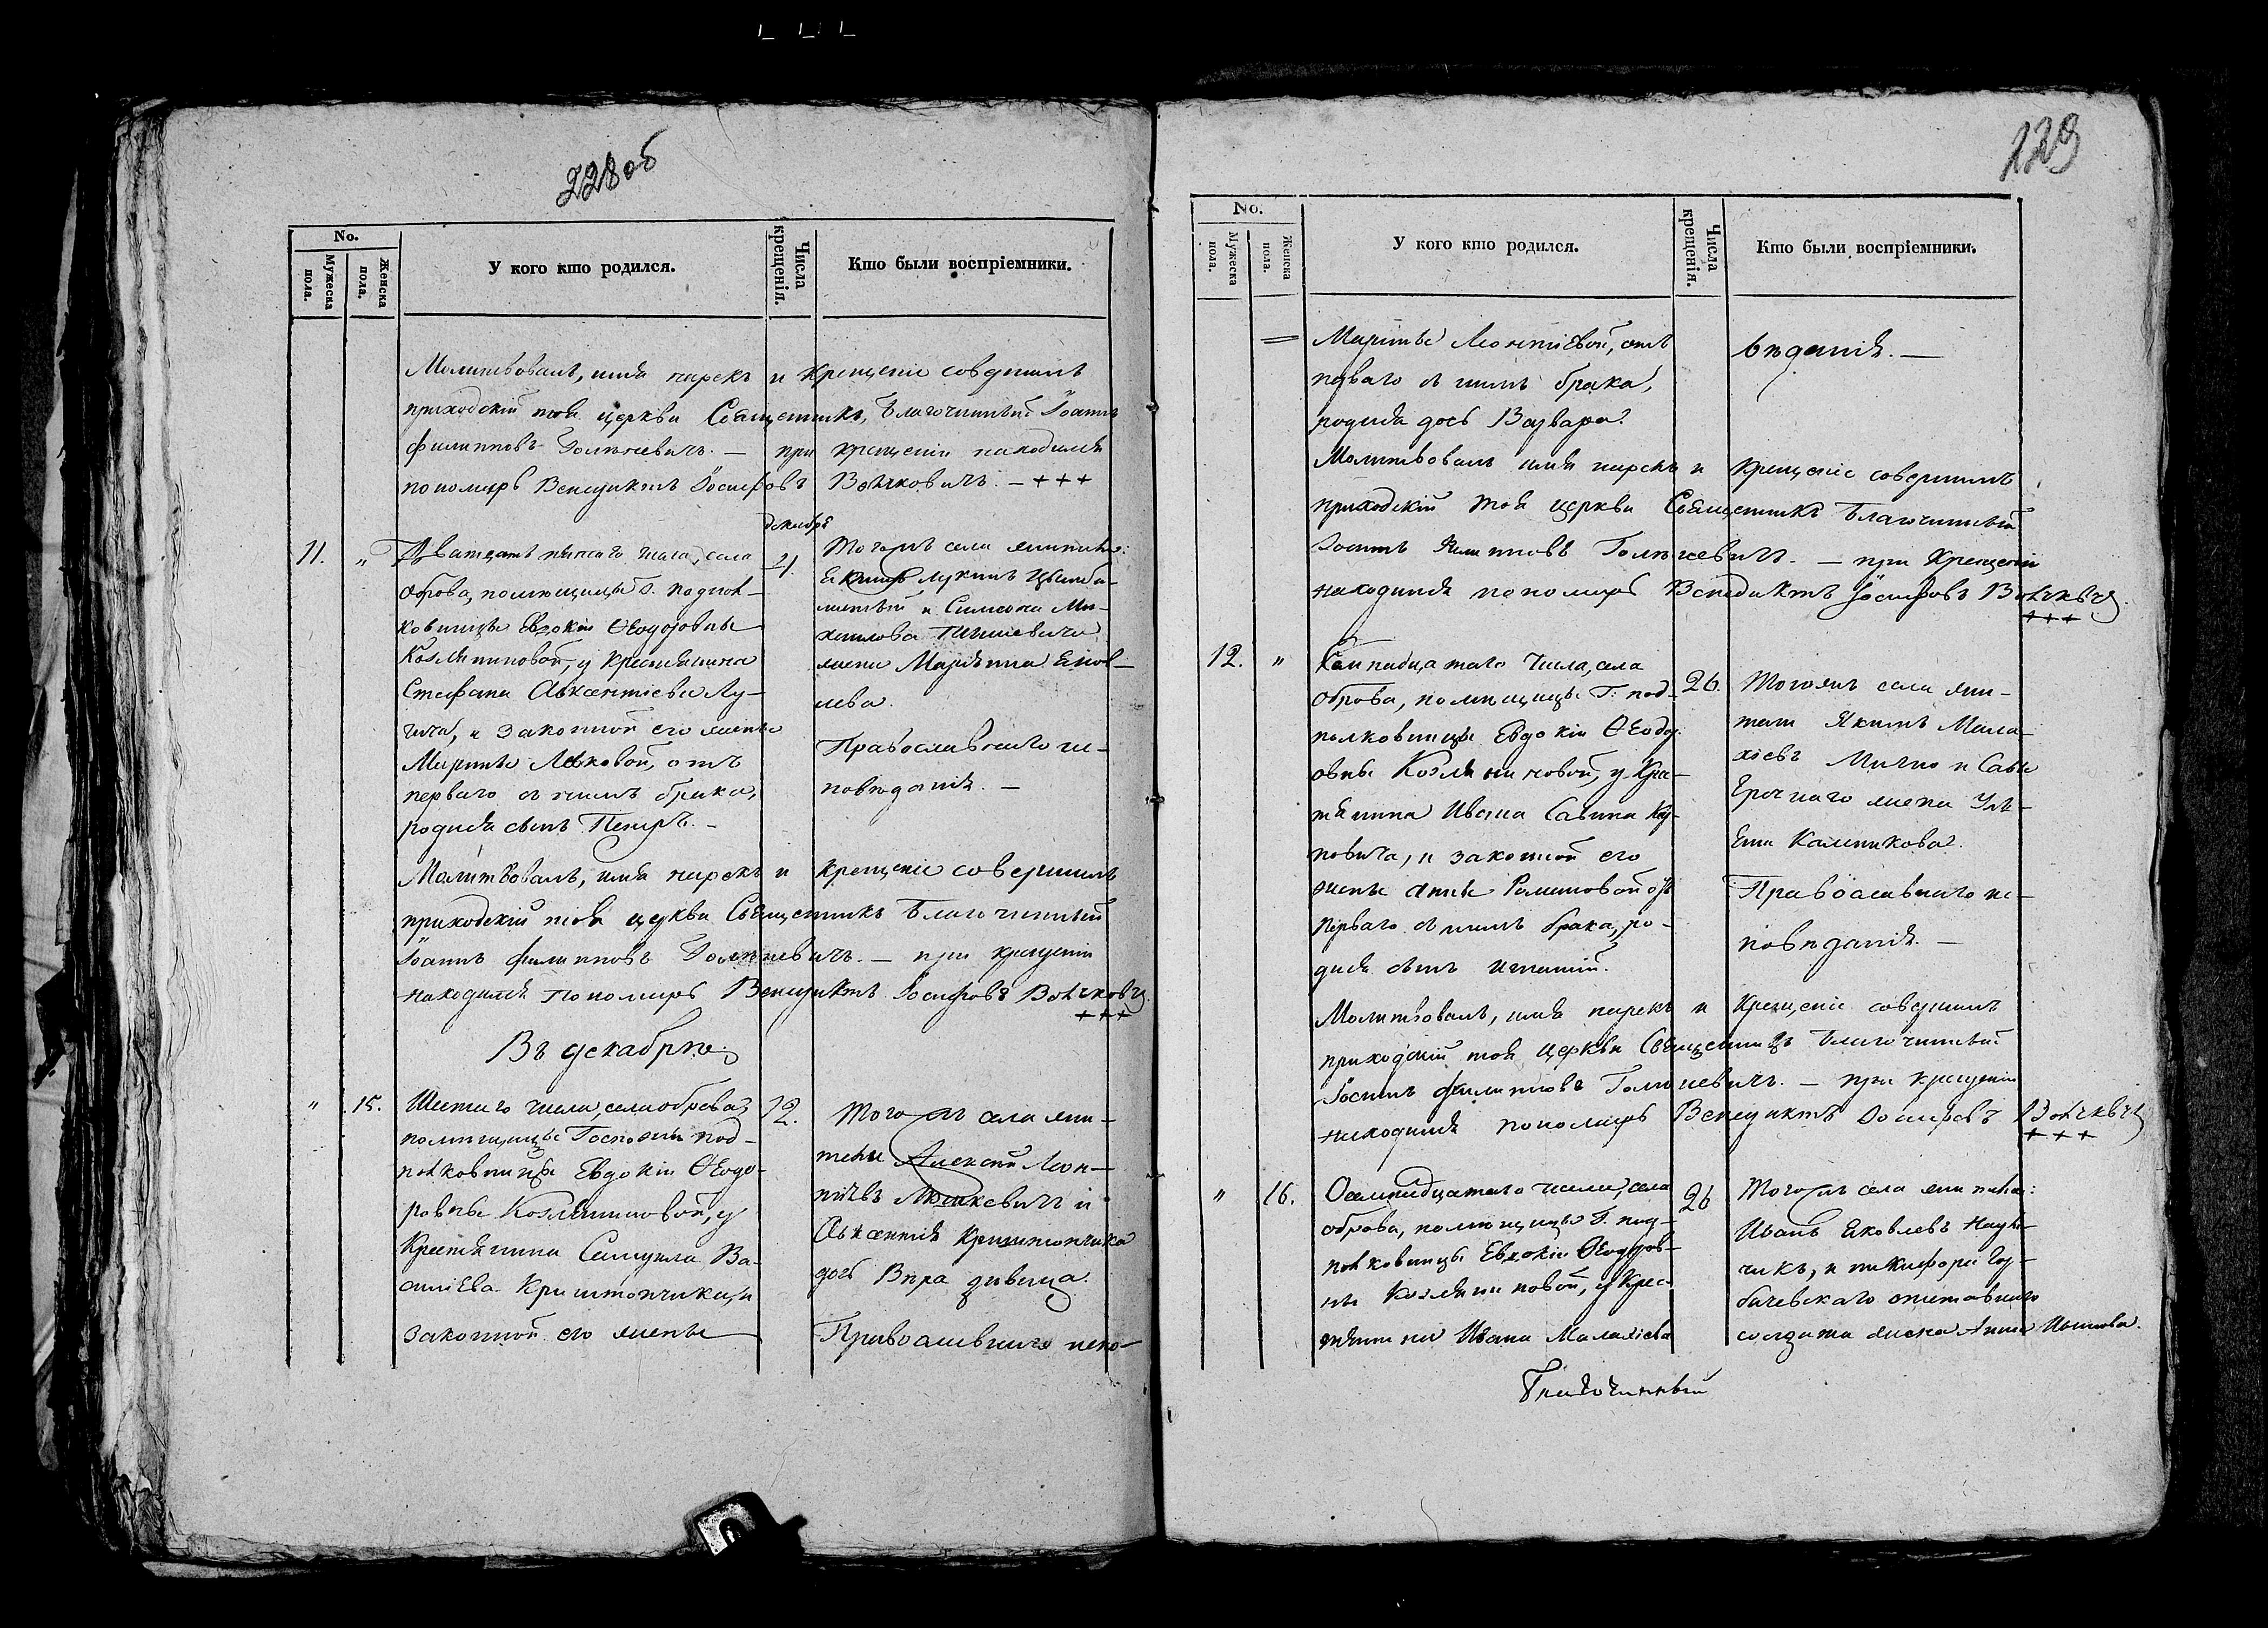 228 об
No.
Мужеска пола.
Женска пола.
У кого кто родился.
Числа крещенія.
Кто были воспріемники.
Молитвовалъ, имя нарекъ и крещеніе совершилъ
приходскій тоя церкви Священникъ, Благочинный Іоаннъ
Филипповъ — при крещеніи находился
пономарь Венедиктъ Іосифовъ Войтковичъ. — +++
декабря
11. „ Двадцать пятаго числа, села
Оброва, помѣщицы Г. Подпол-
ковницы Евдокіи Ѳеодоровны
Козляиновой, у крестьянина
Стефана Авксентіева Лу-
чича, и законной его жены
Марины Левковой, отъ
перваго съ нимъ брака,
родился сынъ Петръ. —
4.
Тогожъ села жители:
Лукинъ
и Симеона Ми-
хайлова
жена Марьяна Яков-
лева.
Православнаго ис-
повѣданія. —
Молитвовалъ, имя нарекъ и крещеніе совершилъ
приходскій тоя церкви Священникъ Благочинный
Іоаннъ Филипповъ — при крещеніи
находился Пономарь Венедиктъ Іосифовъ Войтковичъ
+++
Въ декабрѣ:
„ 15. Шестаго числа, села Оброва,
помѣщицы Госпожи под-
полковницы Евдокіи Ѳеодо-
ровны Козляиновой, у
Крестьянина Самуила Ва-
силіева Криштопчика, и
законной его жены
12.
Тогожъ села жи-
тели Алексій Леон-
тіевъ и
Авксентія Криштопчика
дочь Вѣра дѣвица.
Православнаго испо-
129
No.
Мужеска пола.
Женска пола.
У кого кто родился.
Числа крещенія.
Кто были воспріемники.
= Марины Леонтіевой, отъ
перваго съ нимъ брака,
родися дочь Варвара.
вѣданія. —
Молитвовалъ имя нарекъ и крещеніе совершилъ
приходскій тоя церкви Священникъ Благочинный
Іоаннъ Филипповъ — при Крещеніи
находился пономарь Венедиктъ Іосифовъ Войтковичъ
+++
12. „ числа, села
Оброва, помѣщицы Г: под-
полковницы Евдокіи Ѳеодор-
овны Козляиновой, у Крес-
тьянина Ивана Савина
и законной его
жены Анны Романовой отъ
перваго съ нимъ брака, ро-
дися сынъ Игнатій.
26.
Тогожъ села жи-
тели Якимъ Мала-
хіевъ и Савы
жена Уль-
яна
Православнаго ис-
повѣданія. —
Молитвовалъ, имя нарекъ и Крещеніе совершилъ
приходскій тоя Церкви Священникъ Благочинный
Іоаннъ Филипповъ — при крещеніи
находился пономарь Венедиктъ Іосифовъ Войтковичъ
+++
„ 16. Осмнадцатаго числа, села
Оброва, помѣщицы Г. под-
полковницы Евдокіи Ѳеодоров-
ны Козляиновой, у Крес-
тьянина Ивана Малахіева
26
Тогожъ села жители:
Иванъ Яковлевъ
и Никифора
отставнаго
солдата жена Анна Иванова.
Благочинный